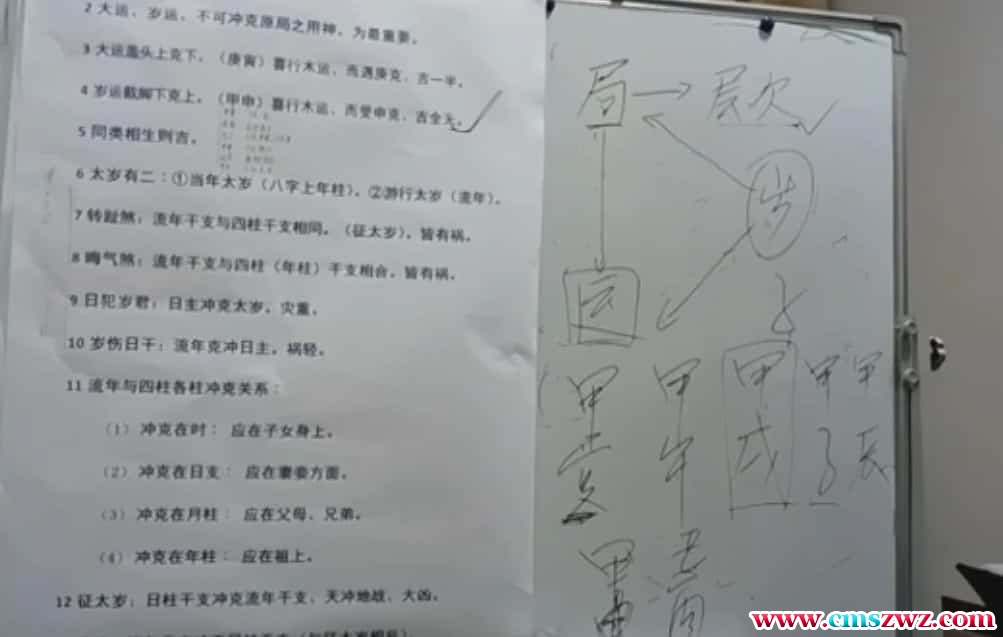 2 大运、岁运，不可冲克原局之用神，为最重要。
3 大运盖头上克下。（庚寅）喜行木运，而遇庚克，吉一半。
4 岁运截脚下克上。（甲申）喜行木运，而受申克，吉全无。
5 同类相生则吉。
6 太岁有二：①当年太岁（八字上年柱）。②游行太岁（流年）。
7 转趾煞：流年干支与四柱干支相同。（征太岁）。皆有祸。
8 晦气煞：流年干支与四柱（年柱）干支相合。皆有祸。
9 日犯岁君：日主冲克太岁。灾重。
10 岁伤日干：流年克冲日主。祸轻。
11 流年与四柱各柱冲克关系：
（1） 冲克在时： 应在子女身上。
（2） 冲克在日支： 应在妻妾方面。
（3） 冲克在月柱： 应在父母、兄弟。
（4） 冲克在年柱： 应在祖上。
12 征太岁：日柱干支冲克流年干支，天冲地战，大凶。
局 → 层次
岁
运
甲 甲 甲 甲 甲
午 戌 子 辰
甲
寅
www.cmszwz.com